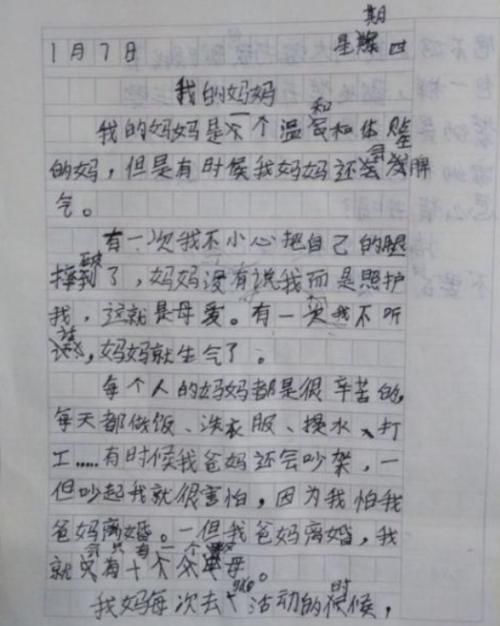 1月7日 星期四
我的妈妈
我的妈妈是一个温和和体贴
的妈,但是有时候我妈妈还会发脾
气。
有一次我不小心把自己的腿
摔破了,妈妈没有说我而是照护
我,这就是母爱。有一次我不听
话,妈妈就生气了。
每个人的妈妈都是很辛苦的,
每天都做饭、洗衣服、提水、打
工……有时候我爸妈还会吵架,一
但吵起我就很害怕,因为我怕我
爸妈离婚。一但我爸妈离婚,我
就会只有一个
我妈每次去 活动的时候,